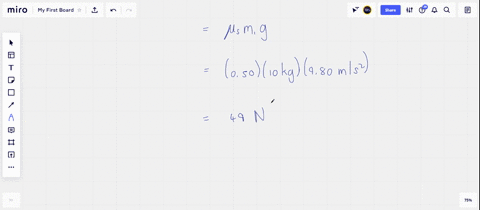 miro My First Board Share
= μs m1 g
= (0.50)(10 kg)(9.80 m/s²)
= 49 N
75%